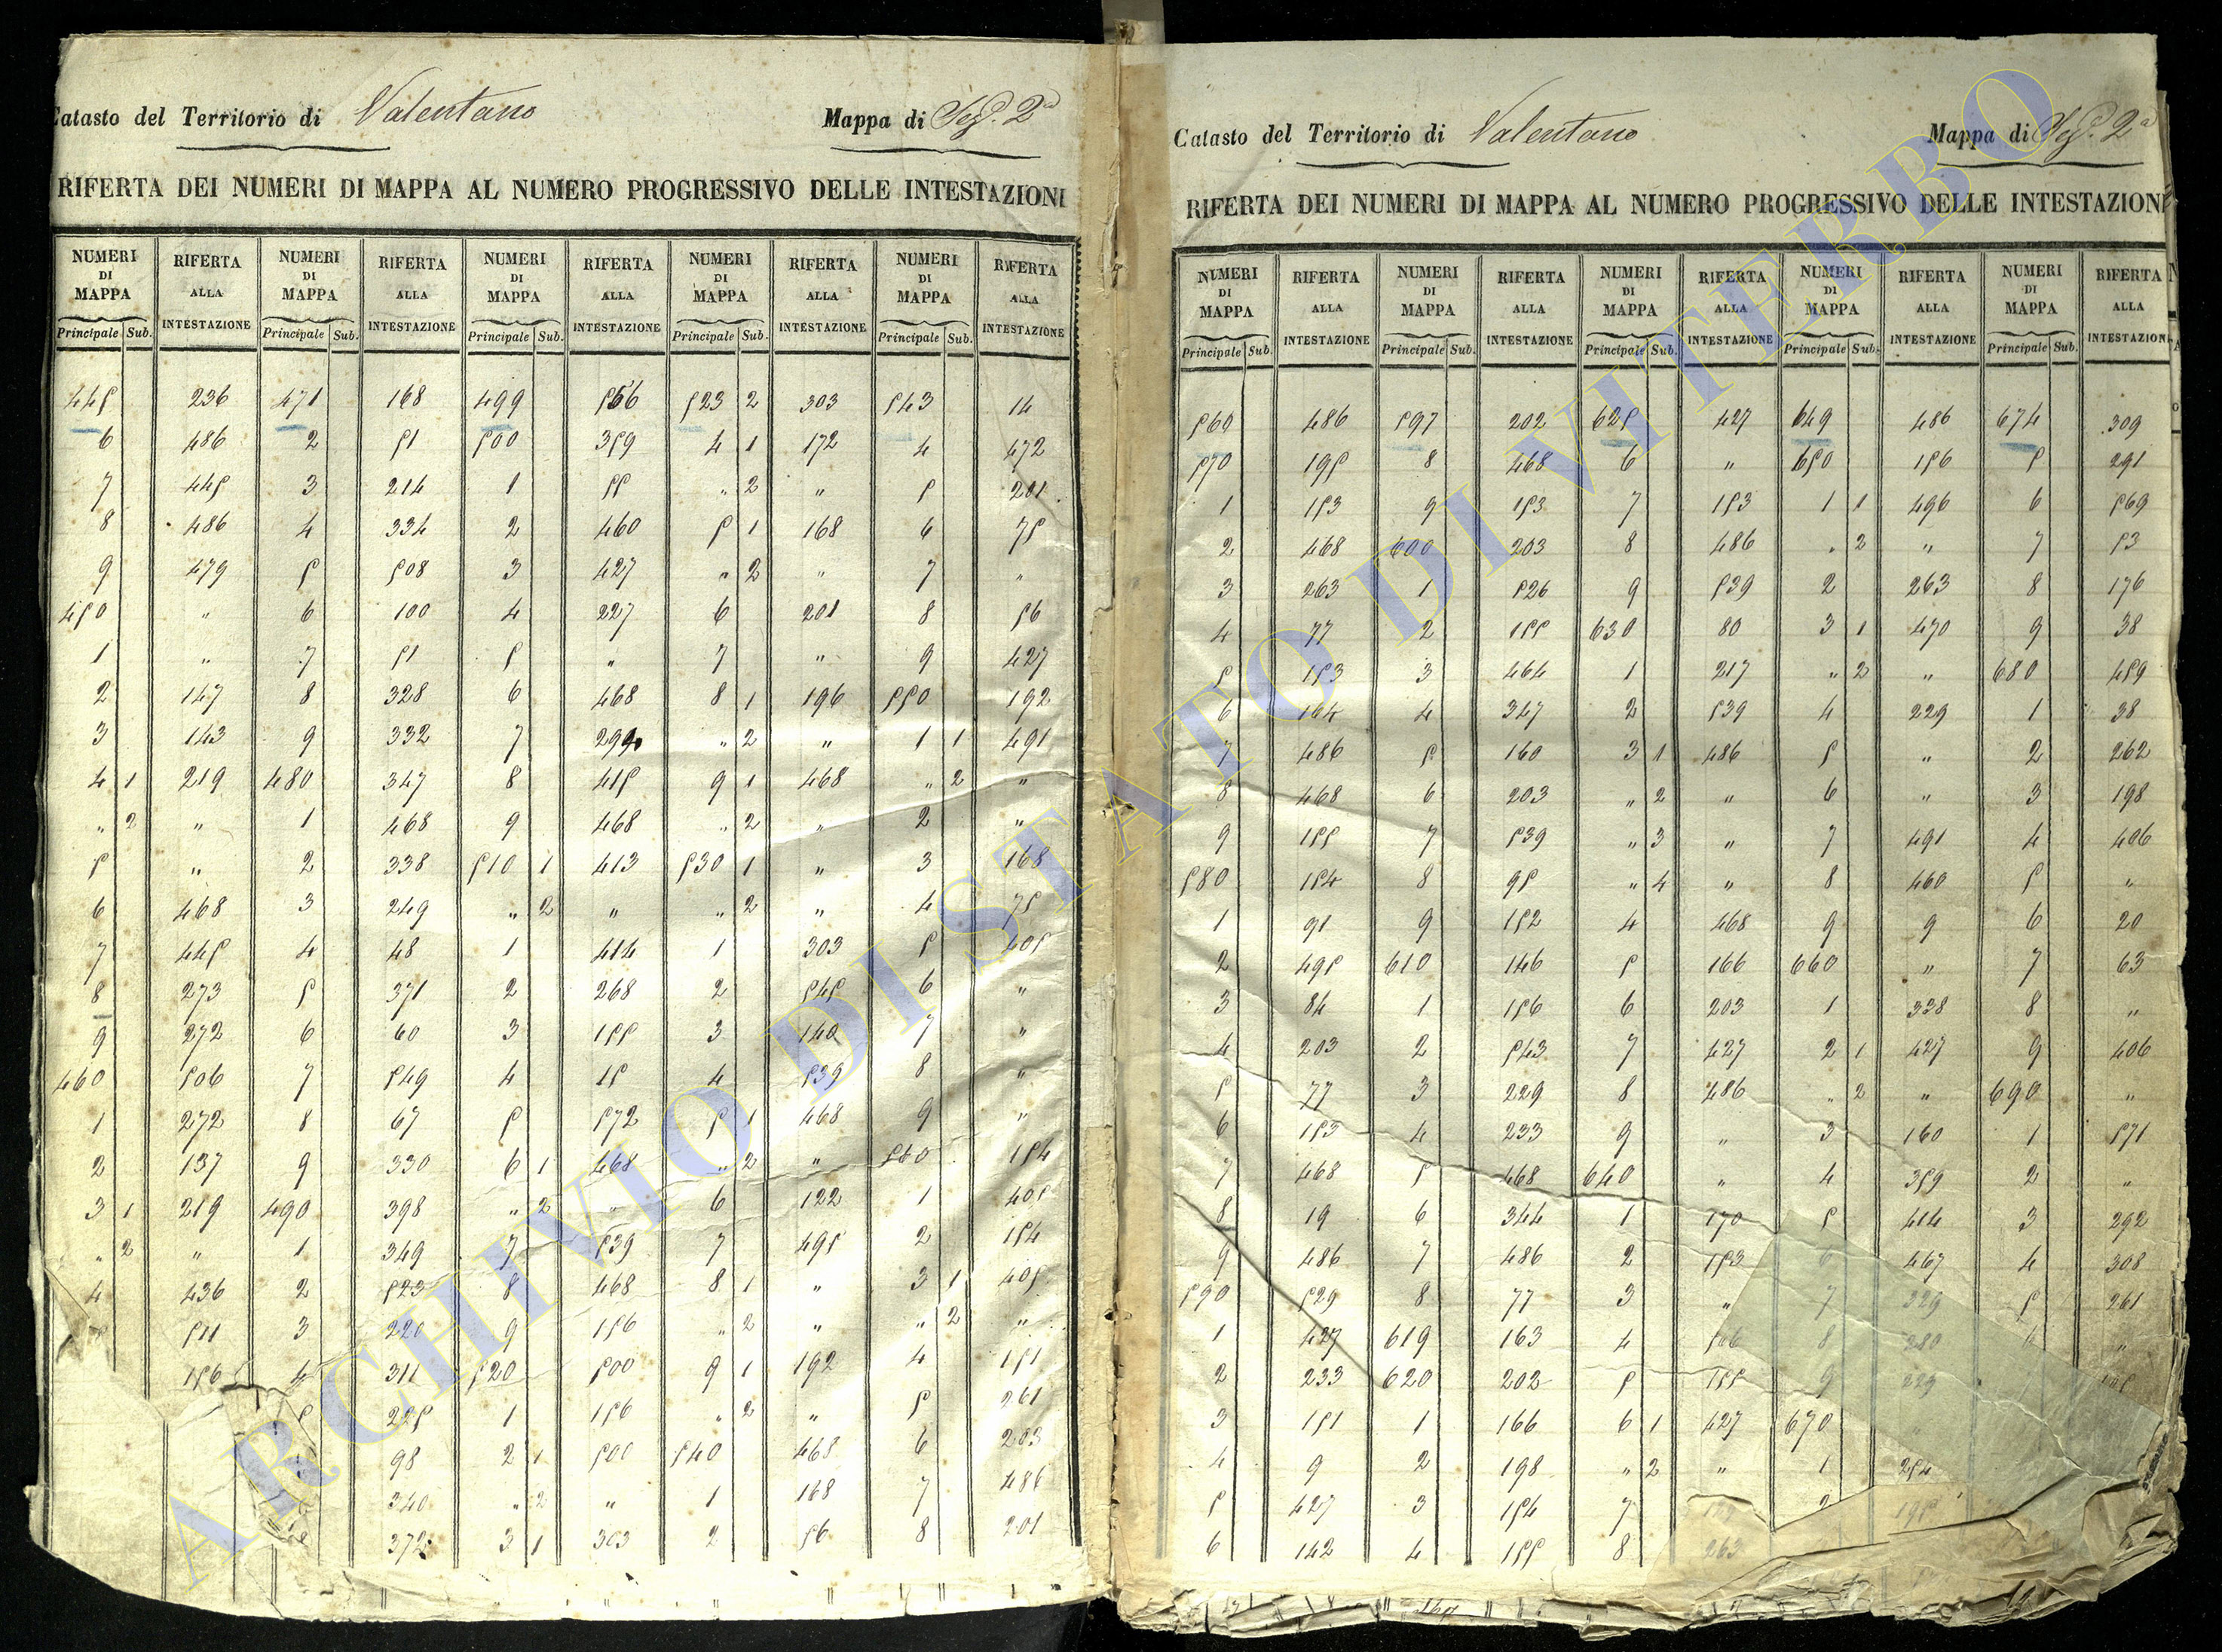 Catasto del Territorio di Valentano Mappa di Sez. 2a
RIFERTA DEI NUMERI DI MAPPA AL NUMERO PROGRESSIVO DELLE INTESTAZIONI
NUMERI RIFERTA NUMERI RIFERTA NUMERI RIFERTA NUMERI RIFERTA NUMERI RIFERTA
DI ALLA DI ALLA DI ALLA DI ALLA DI ALLA
MAPPA INTESTAZIONE MAPPA INTESTAZIONE MAPPA INTESTAZIONE MAPPA INTESTAZIONE MAPPA INTESTAZIONE
Principale Sub. Principale Sub. Principale Sub. Principale Sub. Principale Sub.
445 236 471 168 499 556 523 2 303 543 14
6 486 2 51 500 359 4 1 172 4 472
7 445 3 214 1 55 „ 2 „ 5 201
8 486 4 334 2 460 5 1 168 6 75
9 479 5 508 3 427 „ 2 „ 7 „
450 „ 6 100 4 227 6 201 8 56
1 „ 7 51 5 „ 7 „ 9 427
2 147 8 328 6 468 8 1 196 550 192
3 143 9 332 7 299 „ 2 „ 1 1 491
4 1 219 480 347 8 415 9 1 468 „ 2 „
„ 2 „ 1 468 9 468 „ 2 „ 2 „
5 „ 2 338 510 1 413 530 1 „ 3 168
6 468 3 249 „ 2 „ „ 2 „ 4 75
7 445 4 48 1 414 1 303 5 405
8 273 5 371 2 268 2 545 6 „
9 272 6 60 3 155 3 140 7 „
460 506 7 549 4 15 4 539 8 „
1 272 8 67 5 572 5 1 468 9 „
2 137 9 330 6 1 468 „ 2 „ 560 154
3 1 219 490 398 „ 2 „ 6 122 1 405
„ 2 „ 1 349 7 539 7 495 2 154
4 436 2 523 8 468 8 1 „ 3 1 405
511 3 220 9 156 „ 2 „ „ 2 „
156 4 311 520 500 9 1 192 4 151
5 225 1 156 „ 2 „ 5 261
98 2 1 500 540 468 6 203
340 „ 2 „ 1 168 7 486
372 3 1 303 2 56 8 201
Catasto del Territorio di Valentano Mappa di Sez. 2a
RIFERTA DEI NUMERI DI MAPPA AL NUMERO PROGRESSIVO DELLE INTESTAZIONI
NUMERI RIFERTA NUMERI RIFERTA NUMERI RIFERTA NUMERI RIFERTA NUMERI RIFERTA
DI ALLA DI ALLA DI ALLA DI ALLA DI ALLA
MAPPA INTESTAZIONE MAPPA INTESTAZIONE MAPPA INTESTAZIONE MAPPA INTESTAZIONE MAPPA INTESTAZIONE
Principale Sub. Principale Sub. Principale Sub. Principale Sub. Principale Sub.
569 486 597 202 625 427 649 486 674 309
570 195 8 468 6 „ 650 156 5 291
1 153 9 153 7 153 1 1 496 6 569
2 468 600 203 8 486 „ 2 „ 7 53
3 263 1 526 9 539 2 263 8 176
4 77 2 155 630 80 3 1 470 9 38
5 153 3 464 1 217 „ 2 „ 680 459
6 164 4 347 2 539 4 229 1 38
7 486 5 160 3 1 486 5 „ 2 262
8 468 6 203 „ 2 „ 6 „ 3 198
9 155 7 539 „ 3 „ 7 491 4 406
580 154 8 95 „ 4 „ 8 460 5 „
1 91 9 152 4 468 9 9 6 20
2 495 610 146 5 166 660 „ 7 63
3 84 1 156 6 203 1 338 8 „
4 203 2 543 7 427 2 1 427 9 406
5 77 3 229 8 486 „ 2 „ 690 „
6 153 4 233 9 „ 3 160 1 571
7 468 5 468 640 „ 4 359 2 „
8 19 6 344 1 170 5 414 3 292
9 486 7 486 2 153 6 467 4 308
590 529 8 77 3 „ 7 329 5 261
1 427 619 163 4 8 280 „
2 233 620 202 5 155 9 229
3 151 1 166 6 1 427 670
4 9 2 198 „ 2 „ 1 254
5 427 3 154 7 2 195
6 142 4 155 8 263
ARCHIVIO DI STATO DI VITERBO